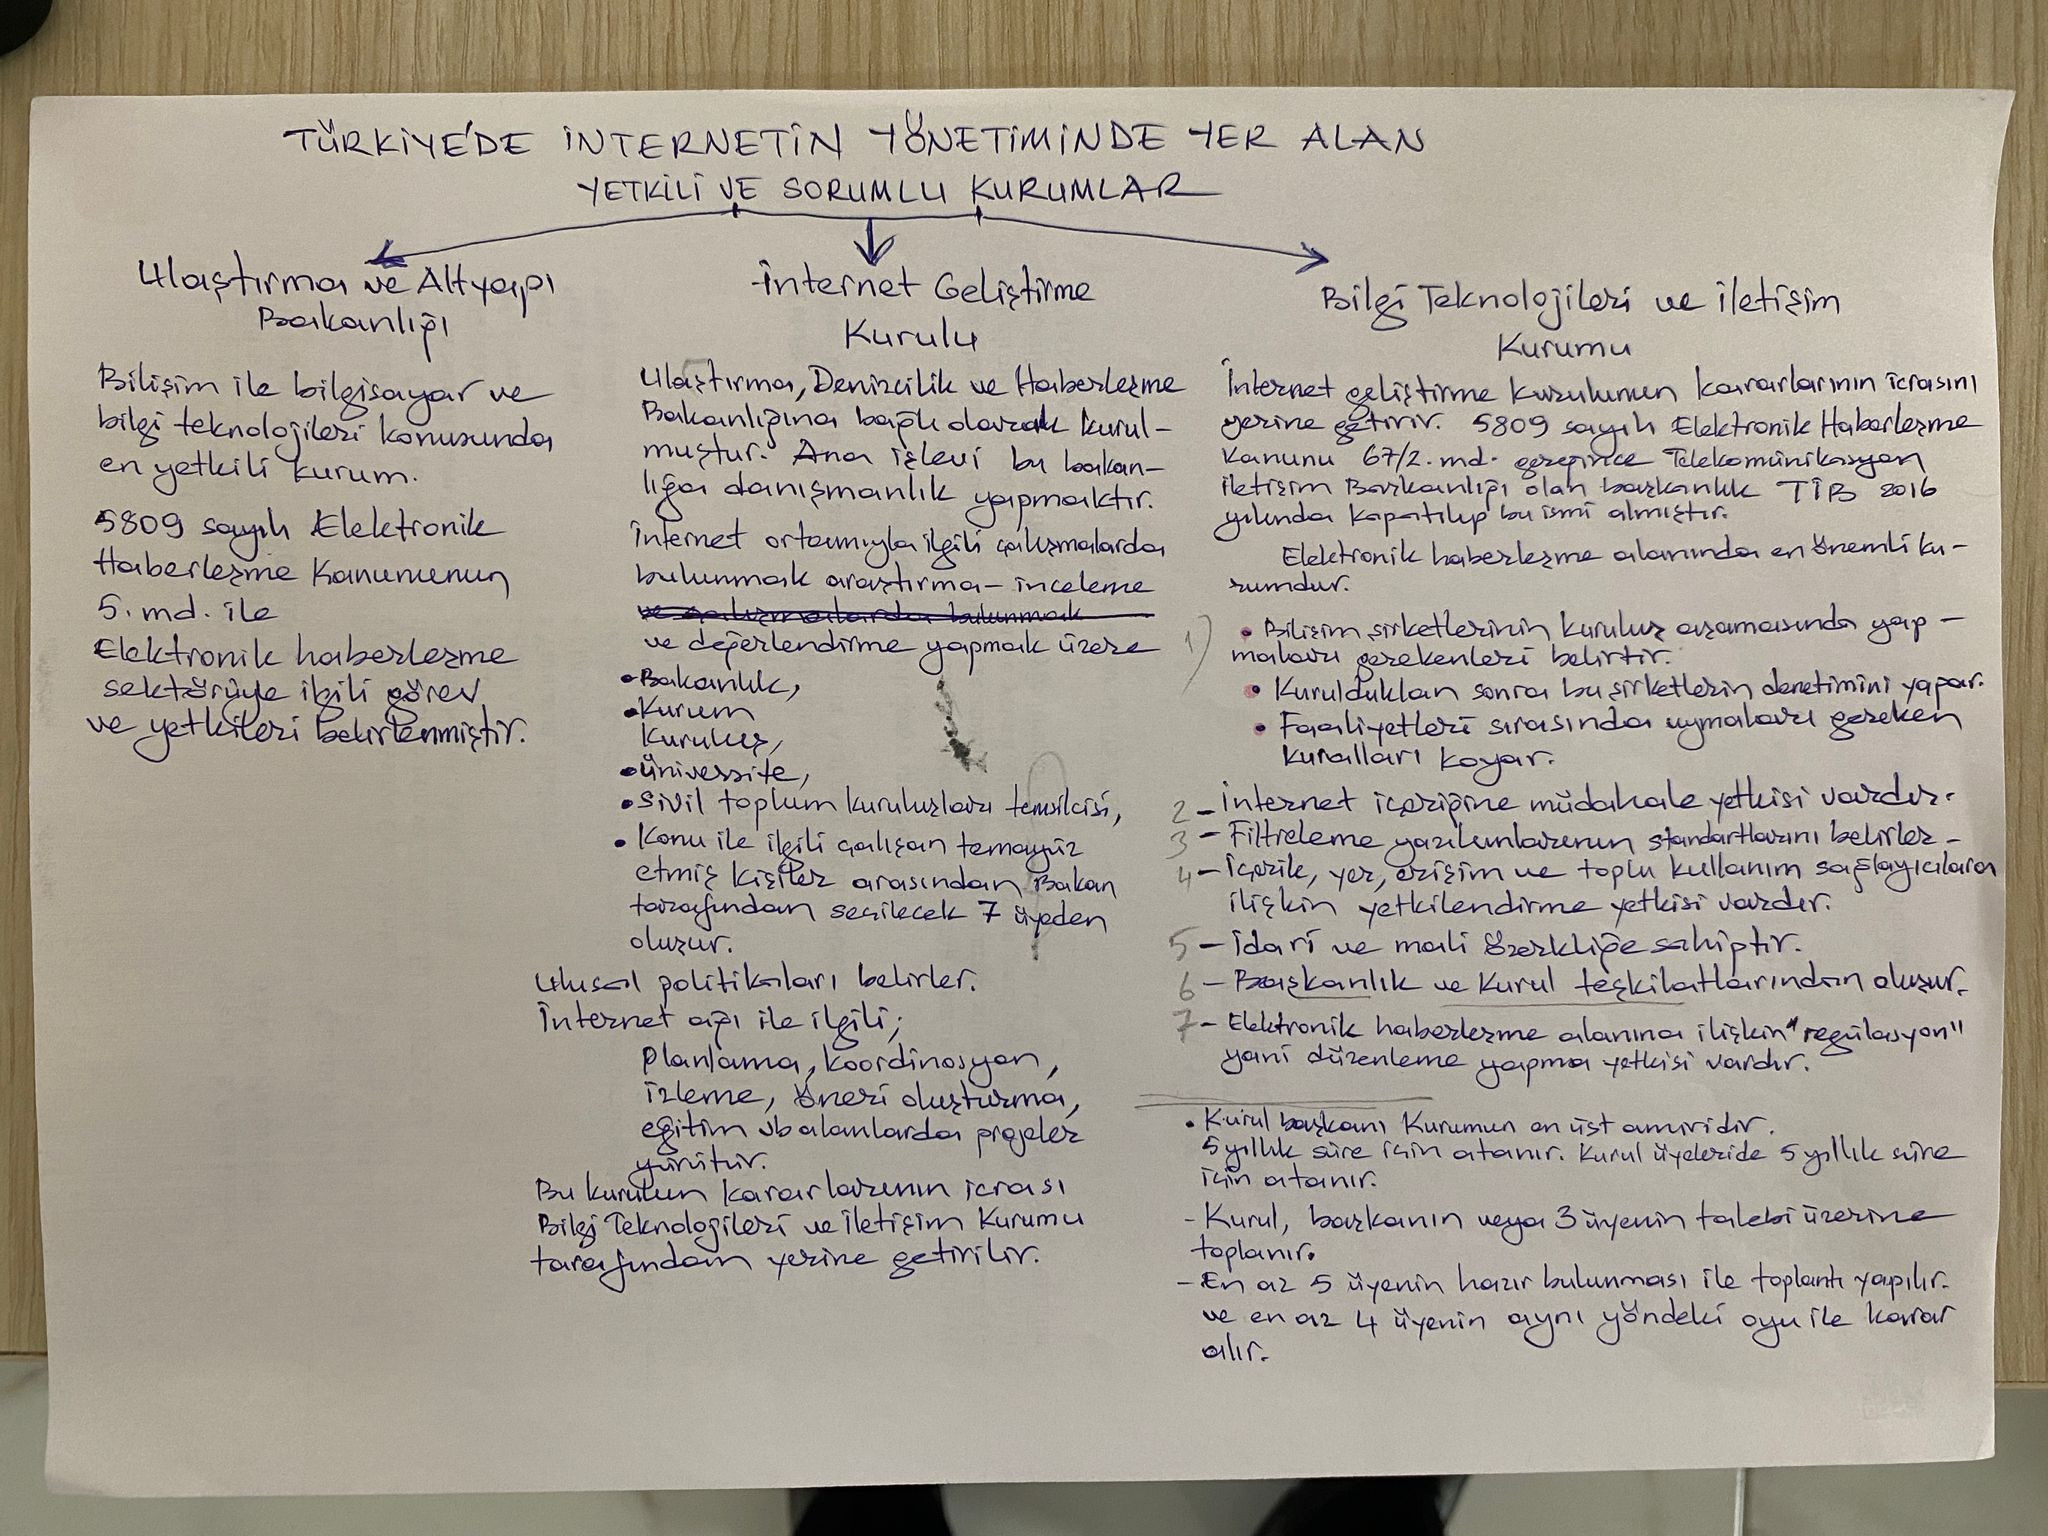 TÜRKİYE'DE İNTERNETİN YÖNETİMİNDE YER ALAN
YETKİLİ VE SORUMLU KURUMLAR
Ulaştırma ve Altyapı
Bakanlığı
Bilişim ile bilgisayar ve
bilgi teknolojileri konusunda
en yetkili kurum.
5809 sayılı Elektronik
Haberleşme Kanununun
5. md. ile
Elektronik haberleşme
sektörüyle ilgili görev
ve yetkileri belirlenmiştir.
İnternet Geliştirme
Kurulu
Ulaştırma, Denizcilik ve Haberleşme
Bakanlığına bağlı olarak kurul-
muştur. Ana işlevi bu bakan-
lığa danışmanlık yapmaktır.
İnternet ortamıyla ilgili çalışmalarda
bulunmak araştırma-inceleme
ve çalışmalarda bulunmak
ve değerlendirme yapmak üzere
• Bakanlık,
• Kurum
Kuruluş,
• üniversite,
• Sivil toplum kuruluşları temsilcisi,
• Konu ile ilgili çalışan temayüz
etmiş kişiler arasından Bakan
tarafından seçilecek 7 üyeden
oluşur.
Ulusal politikaları belirler.
İnternet ağı ile ilgili;
Planlama, koordinosyon,
izleme, öneri oluşturma,
eğitim vb alanlarda projeler
yürütür.
Bu kurulun kararlarının icrası
Bilgi Teknolojileri ve İletişim Kurumu
tarafından yerine getirilir.
Bilgi Teknolojileri ve İletişim
Kurumu
İnternet geliştirme kurulunun kararlarının icrasını
yerine getirir. 5809 sayılı Elektronik Haberleşme
Kanunu 67/2. md. gereğince Telekomünikasyon
iletişim Başkanlığı olan başkanlık TİB 2016
yılında kapatılıp bu ismi almıştır.
Elektronik haberleşme alanında en önemli ku-
rumdur.
1) • Bilişim şirketlerinin kuruluş aşamasında yap-
maları gerekenleri belirtir.
• Kurulduktan sonra bu şirketlerin denetimini yapar.
• Faaliyetleri sırasında uymaları gereken
kuralları koyar.
2 - İnternet içeriğine müdahale yetkisi vardır.
3 - Filtreleme yazılımlarının standartlarını belirler.
4 - İçerik, yer, erişim ve toplu kullanım sağlayıcılara
ilişkin yetkilendirme yetkisi vardır.
5 - İdari ve mali özerkliğe sahiptir.
6 - Başkanlık ve Kurul teşkilatlarından oluşur.
7 - Elektronik haberleşme alanına ilişkin "regülasyon"
yani düzenleme yapma yetkisi vardır.
• Kurul başkanı Kurumun en üst amiridir.
5 yıllık süre için atanır. Kurul üyeleride 5 yıllık süre
için atanır.
- Kurul, başkanın veya 3 üyenin talebi üzerine
toplanır.
- En az 5 üyenin hazır bulunması ile toplantı yapılır.
ve en az 4 üyenin aynı yöndeki oyu ile karar
alır.